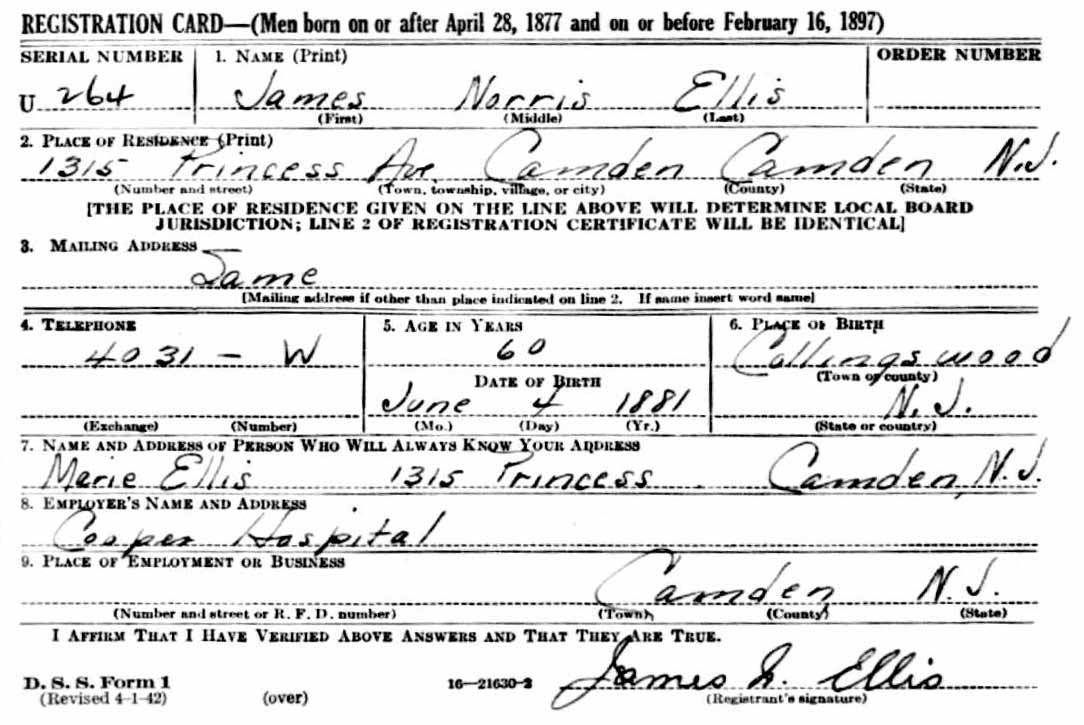 REGISTRATION CARD—(Men born on or after April 28, 1877 and on or before February 16, 1897)
SERIAL NUMBER 1. NAME (Print) ORDER NUMBER
U 264 James Norris Ellis
(First) (Middle) (Last)
2. PLACE OF RESIDENCE (Print)
1315 Princess Ave. Camden Camden N.J.
(Number and street) (Town, township, village, or city) (County) (State)
[THE PLACE OF RESIDENCE GIVEN ON THE LINE ABOVE WILL DETERMINE LOCAL BOARD
JURISDICTION; LINE 2 OF REGISTRATION CERTIFICATE WILL BE IDENTICAL]
3. MAILING ADDRESS
Same
[Mailing address if other than place indicated on line 2. If same insert word same]
4. TELEPHONE 5. AGE IN YEARS 6. PLACE OF BIRTH
4031 - W 60 Collingswood
DATE OF BIRTH (Town or county)
June 4 1881 N.J.
(Exchange) (Number) (Mo.) (Day) (Yr.) (State or country)
7. NAME AND ADDRESS OF PERSON WHO WILL ALWAYS KNOW YOUR ADDRESS
Marie Ellis 1315 Princess Camden, N.J.
8. EMPLOYER'S NAME AND ADDRESS
Cooper Hospital
9. PLACE OF EMPLOYMENT OR BUSINESS
Camden N.J.
(Number and street or R. F. D. number) (Town) (County) (State)
I AFFIRM THAT I HAVE VERIFIED ABOVE ANSWERS AND THAT THEY ARE TRUE.
James N. Ellis
D. S. S. Form 1 16—21630-2
(Revised 4-1-42) (over) (Registrant's signature)